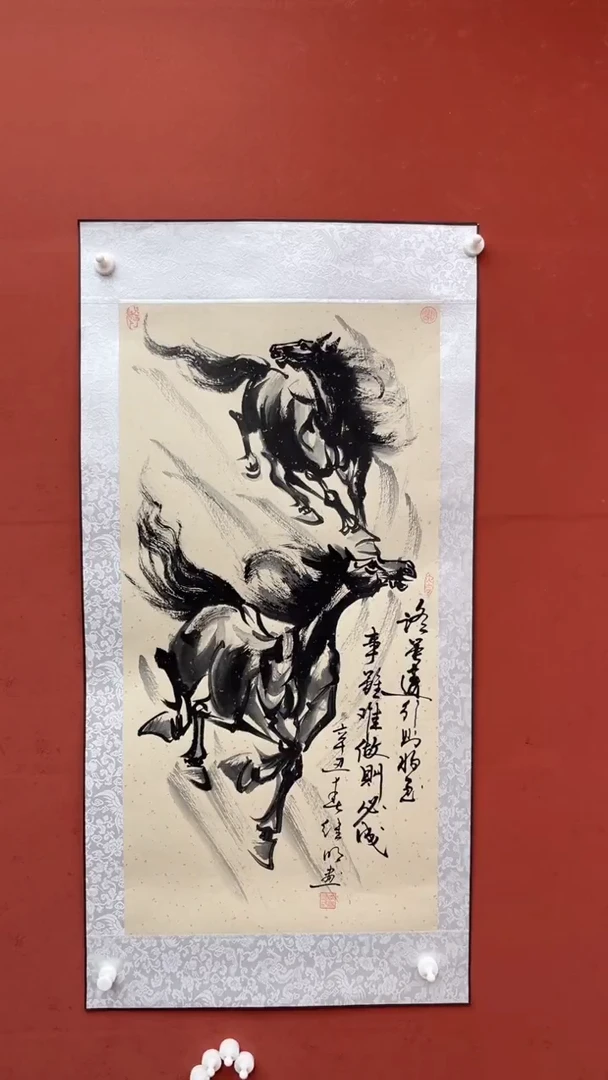 路虽远行则将至
事雖难做則必成
辛丑春继明画